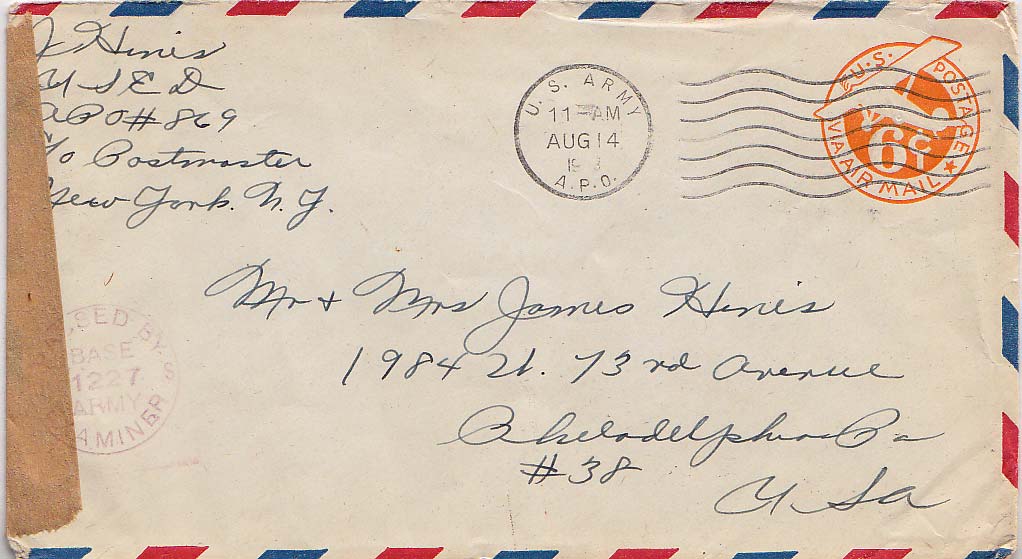 J Hines
U S E D
APO # 869
c/o Postmaster
New York. N. Y.
U. S. ARMY
11-AM
AUG 14
A.P.O.
U.S. POSTAGE
6 CT
VIA AIR MAIL
Mr + Mrs James Hines
1984 W. 73rd Avenue
Philadelphia Pa
# 38
U S a
SED BY
BASE
1227
ARMY
AMINER